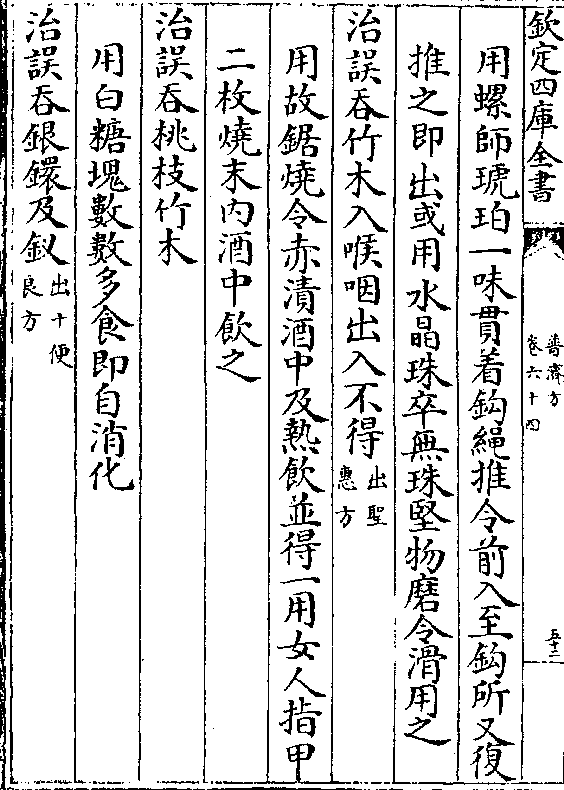 欽定四庫全書
普濟方
卷六十四
五十三
用螺師琥珀一味貫着鈎繩推令前入至鈎所又復
推之即出或用水晶珠卒無珠堅物磨令滑用之
治誤吞竹木入喉咽出入不得出聖惠方
用故鋸燒令赤漬酒中及熱飲並得一用女人指甲
二枚燒末内酒中飲之
治誤吞桃枝竹木
用白糖塊數數多食即自消化
治誤吞銀鐶及釵出十便良方